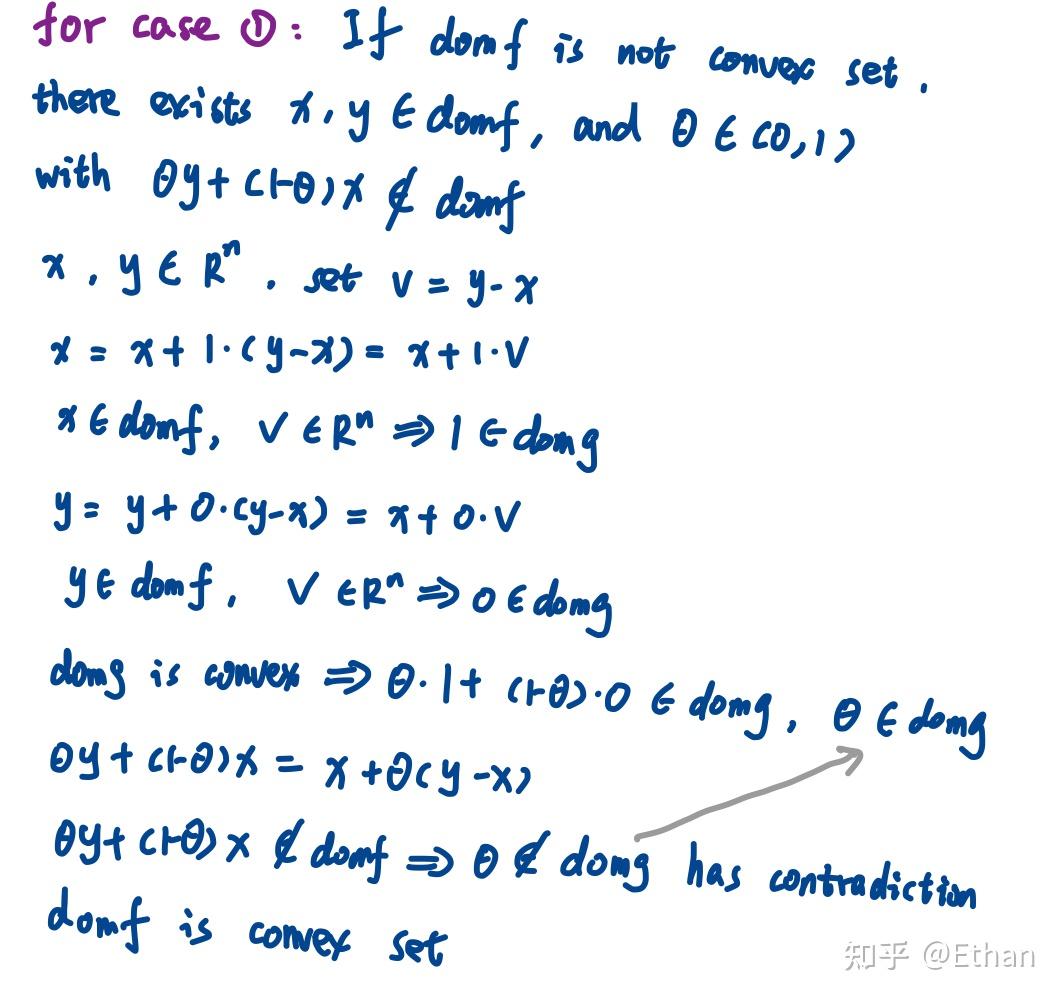 for case ①: If domf is not convex set.
there exists x, y ∈ domf, and θ ∈ (0,1)
with θy+(1-θ)x ∉ domf
x, y ∈ Rⁿ. set v = y-x
x = x+1·(y-x) = x+1·v
x ∈ domf, v ∈ Rⁿ ⇒ 1 ∈ domg
y = y+0·(y-x) = x+0·v
y ∈ domf, v ∈ Rⁿ ⇒ 0 ∈ domg
domg is convex ⇒ θ·1+(1-θ)·0 ∈ domg, θ ∈ domg
θy+(1-θ)x = x+θ(y-x)
θy+(1-θ)x ∉ domf ⇒ θ ∉ domg has contradiction
domf is convex set
知乎 @Ethan